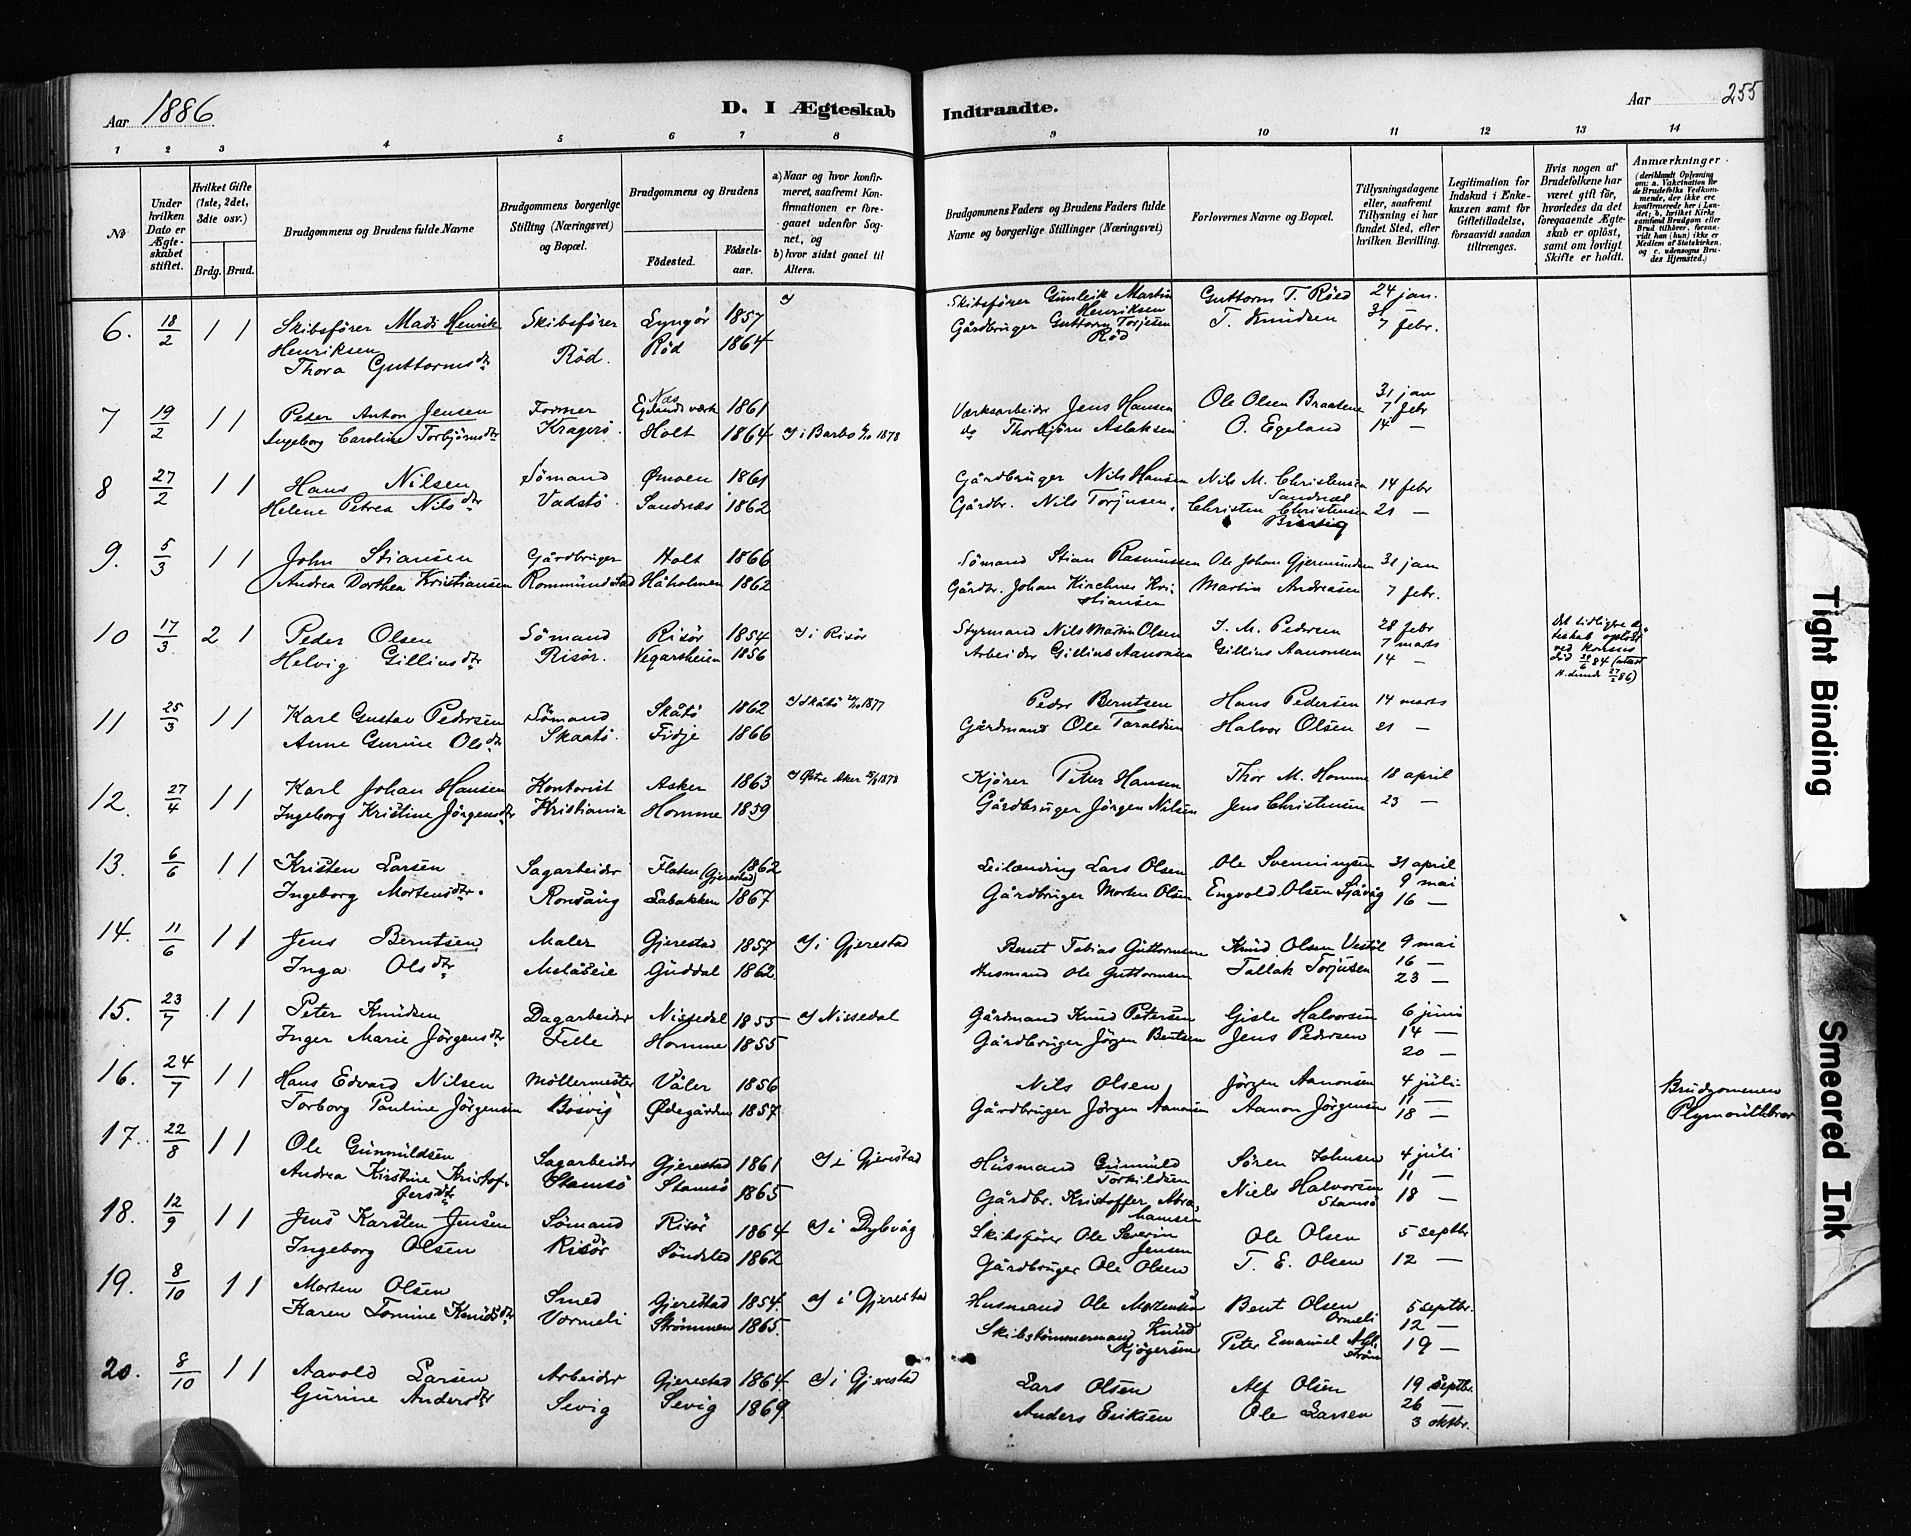 Aar 1886
D. I Ægteskab Indtraadte.
Aar 255
1 2 3 4 5 6 7 8 9 10 11 12 13 14
№
Under hvilken Dato er Ægteskabet stiftet.
Hvilket Gifte (1ste, 2det, 3die osv.)
Brdg. Brud.
Brudgommens og Brudens fulde Navne
Brudgommens borgerlige Stilling (Næringsvei) og Bopæl.
Brudgommens og Brudens
Födested. Födselsaar.
a) Naar og hvor konfirmeret, saafremt Konfirmationen er foregaaet udenfor Sognet, og
b) hvor sidst gaaet til Alters.
Brudgommens Faders og Brudens Faders fulde Navne og borgerlige Stillinger (Næringsvei)
Forlovernes Navne og Bopæl.
Tillysningsdagene eller, saafremt Tillysning ei har fundet Sted, efter hvilken Bevilling.
Legitimation for Indskud i Enkekassen samt for Giftetilladelse, forsaavidt saadan tiltrænges.
Hvis nogen af Brudefolkene har været gift för, hvorledes da det foregaaende Ægteskab er oplöst, samt om lovligt Skifte er holdt.
Anmærkninger
(deriblandt Oplysning om: a. Vakcination for de Brudefolks Vedkommende, der ikke ere konfirmerede her i Landet; b. hvilket Kirkesamfund Brudgom eller Brud tilhörer, forsaavidt han (hun) ikke er Medlem af Statskirken, og c. udensogns Brudes Hjemsted.)
6. 18/2 1 1 Skibsfører Mads Henrik Skibsfører Lyngør 1857 Skibsfører Gunleik Martin Guttorm T. Röed 24 jan.
Henriksen Henriksen T. Knudsen 31 —
Thora Guttormsdtr Röd. Röd 1864 Gårdbruger Guttorm Torjesen 7 febr.
Röd
7 19/2 1 1 Peter Anton Jensen Former Næs 1861 Værksarbeider Jens Hansen Ole Olsen Braatene 31 jan
Egelands værk 7 febr
Ingeborg Caroline Torbjörnsdtr Kragerö. Holt 1864 I i Barbo 6/10 1878 do Thorbjörn Aslaksen O. Egeland 14 —
8 27/2 1 1 Hans Nilsen Sömand Ømoen 1861 Gårdbruger Nils Hansen Nils M. Christensen 14 febr
Sandnæs
Helene Petrea Nilsdtr Vadstö. Sandnæs 1862 Gårdbr. Nils Torjusen. Christen Christensen 21 —
9. 5/3 1 1 John Stiansen Gårdbruger Holt 1866 Sömand Stian Rasmussen Ole Johan Gjermundsen 31 jan
Andrea Dorthea Kristiansen Rommundstad Håholmen 1862 Gårdbr. Johan Kirchner Kristiansen Martin Andreasen 7 febr.
10 17/3 2 1 Peder Olsen Sömand Risör 1854 I i Risör Styrmand Nils Martin Olsen J. M. Pedersen 28 febr
7 marts
Helvig Gilliusdtr Risör. Vegarsheien 1856 Arbeider Gillius Aanonsen Gillius Aanonsen 14 —
11 25/3 1 1 Karl Gustav Pedersen Sömand Skåtö 1862 I Skåtö 1877 Peder Berntsen Hans Pedersen 14 marts
Anne Gurine Olsdtr Skaatö. Fidje 1866 Gårdmand Ole Taraldsen Halvor Olsen 21 —
12. 27/4 1 1 Karl Johan Hansen Kontorist Asker 1863 I Østre Aker 1878 Kjörer Peter Hansen Thor M. Homme 18 april
Ingeborg Kristine Jörgensdtr Kristiania Homme 1859 Gårdbruger Jörgen Nilsen Jens Christensen 23 —
13. 6/6 1 1 Kristen Larsen Sagarbeider Flaten (Gjerestad) 1862 Leilænding Lars Olsen Ole Svenningsen 31 april
9 mai
Ingeborg Mortensdtr. Ronsäng Labakken 1867 Gårdbruger Morten Olsen Engvold Olsen Sjåvåg 16 —
14. 11/6 1 1 Jens Berntsen Maler Gjerestad 1857 I i Gjerestad Bernt Tobias Guttormsen Knud Olsen Vestöl 9 mai
16 —
Inga Olsdtr Guddal 1862 Husmand Ole Guttormsen Tallak Torjusen 23 —
15. 23/7 1 1 Peter Knudsen Dagarbeider Nissedal 1855 I Nissedal Gårdmand Knud Petersen Gisle Halvorsen 6 juni
14 —
Inger Marie Jörgensdtr Felle Homme 1855 Gårdbruger Jörgen Bentsen Jens Pedersen 20 —
16. 24/7 1 1 Hans Edvard Nilsen Möllermester Våler 1856 Nils Olsen Jörgen Aanonsen 4 juli Brudgommen
11 —
Torborg Pauline Jörgensen Bösvig Ødegården 1857 Gårdbruger Jörgen Aanonsen Aanon Jörgensen 18 — Plymouthbror
17. 22/8 1 1 Ole Gunnuldsen Sagarbeider Gjerestad 1861 I i Gjerestad Husmand Gunnuld Torkildsen Sören Johnsen 4 juli
11 —
Andrea Kirstine Kristoffersdtr Stamsö Stamsö 1865 Gårdbr. Kristoffer Abrahamsen Niels Halvorsen Stamsö 18 —
18. 12/9 1 1 Jens Karsten Jensen Sömand Risör 1864 I i Dybvåg Skibsfører Ole Severin Jensen Ole Olsen 5 septbr
Ingeborg Olsen Risör Söndeled 1862 Gårdbruger Ole Olsen T. E. Olsen 12 —
19. 8/10 1 1 Morten Olsen Smed Gjerestad 1854 I i Gjerestad Husmand Ole Mortensen Bent Olsen Ormeli 5 septbr.
12 —
Karen Tomine Knudsdtr Vormeli Strömmen 1865 Skibstömmermand Knud Kjögersen Peter Emanuel Ahlström 19 —
20. 8/10 1 1 Aavold Larsen Arbeider Gjerestad 1864 I i Gjerestad Lars Olsen Alf Olsen 19 septbr.
26 —
Gurine Andersdtr Sevig Sevig 1869 Anders Eriksen Ole Larsen 3 oktbr.
Tight Binding
Smeared Ink